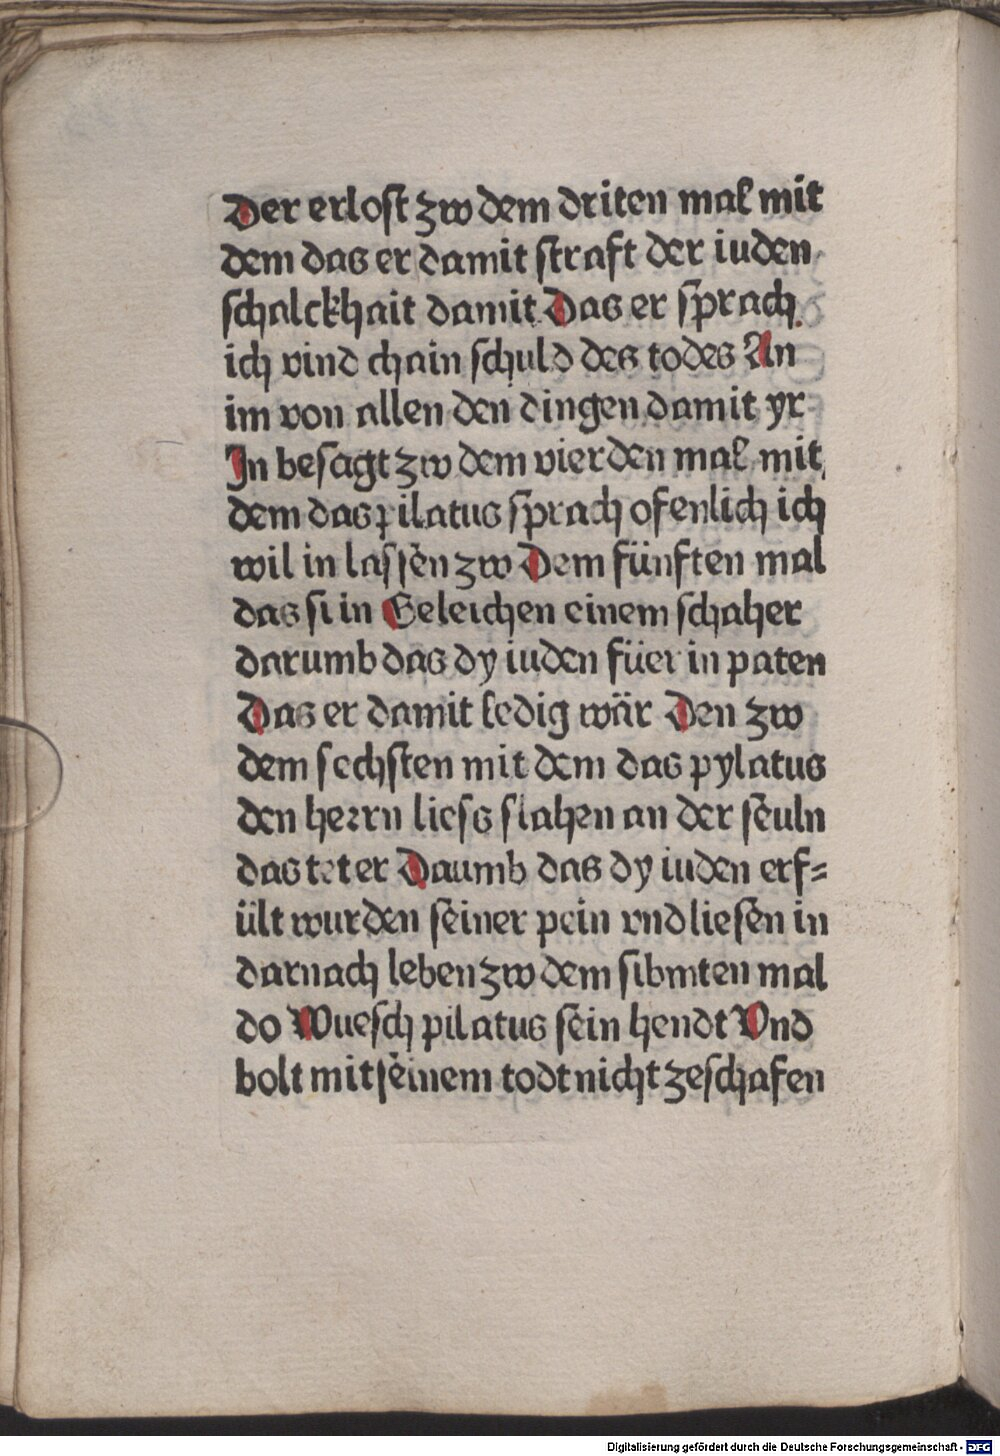 Der erlost zw dem driten mal mit
dem das er damit straft der iuden
schalckhait damit Das er sprach
ich vind chain schuld des todes An
im von allen den dingen damit yr
In besagt zw dem vierden mal mit
dem das pilatus sprach ofenlich ich
wil in lassen zw Dem fünften mal
das si in Geleichen einem schaher
darumb das dy iuden füer in paten
Das er damit ledig wär Den zw
dem sechsten mit dem das pylatus
den herrn liess slahen an der seuln
das tet er Daumb das dy iuden erf=
ült wurden seiner pein vnd liesen in
darnach leben zw dem sibmten mal
do Wuesch pilatus sein hendt Vnd
bolt mit seinem todt nicht zeschafen
Digitalisierung gefördert durch die Deutsche Forschungsgemeinschaft - DFG